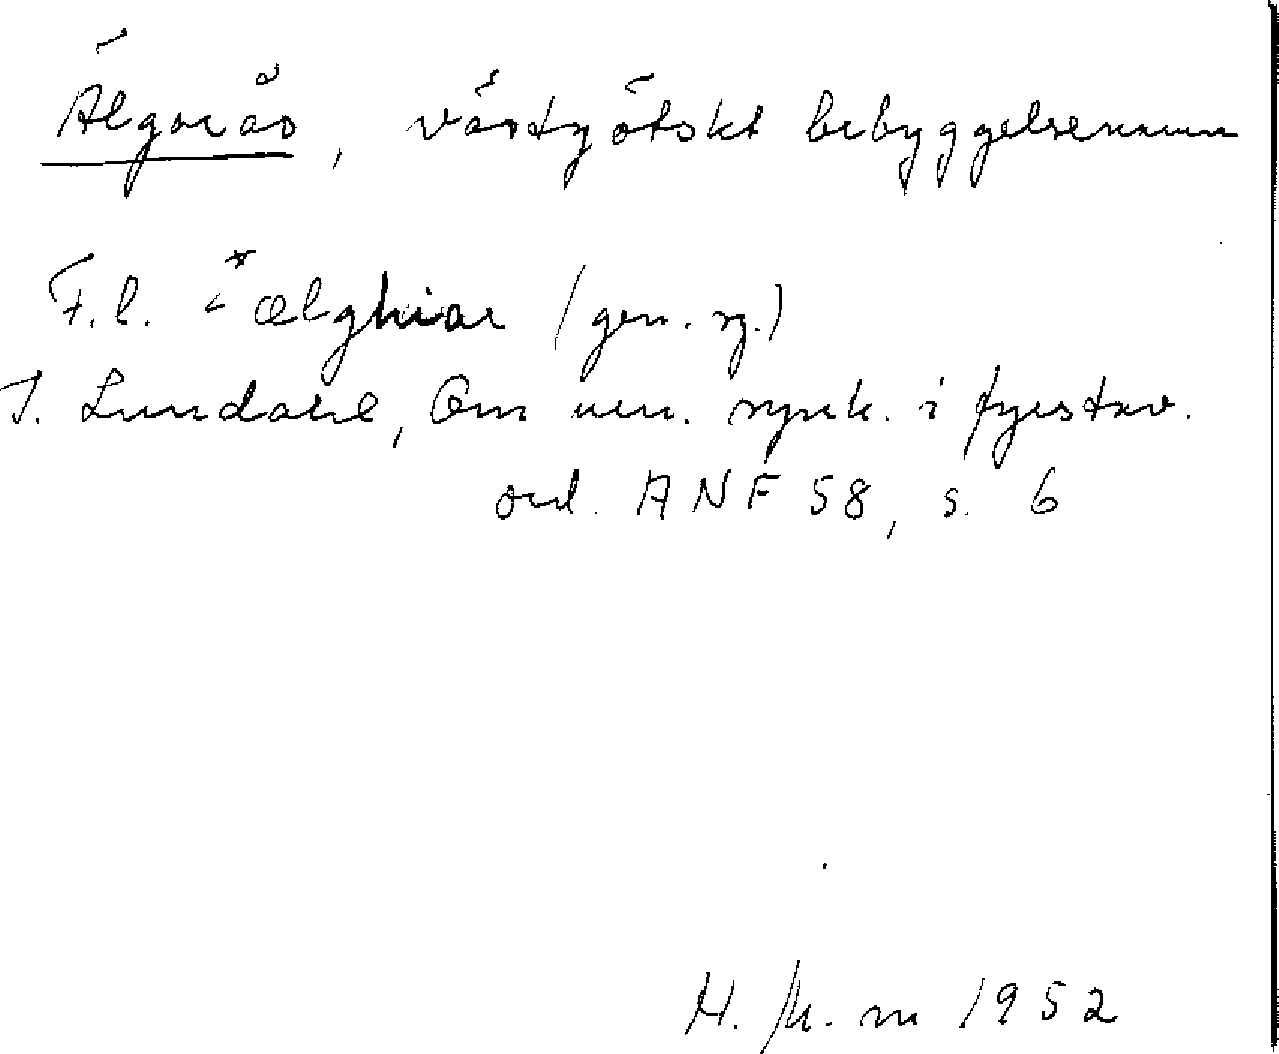 Älgarås, västgötskt bebyggelsenamn
F.l. < *ælghiar (gen. sg.)
I. Lundahl, Om sv. synk. i fyrstav.
ord. ANF 58, s. 6
1952